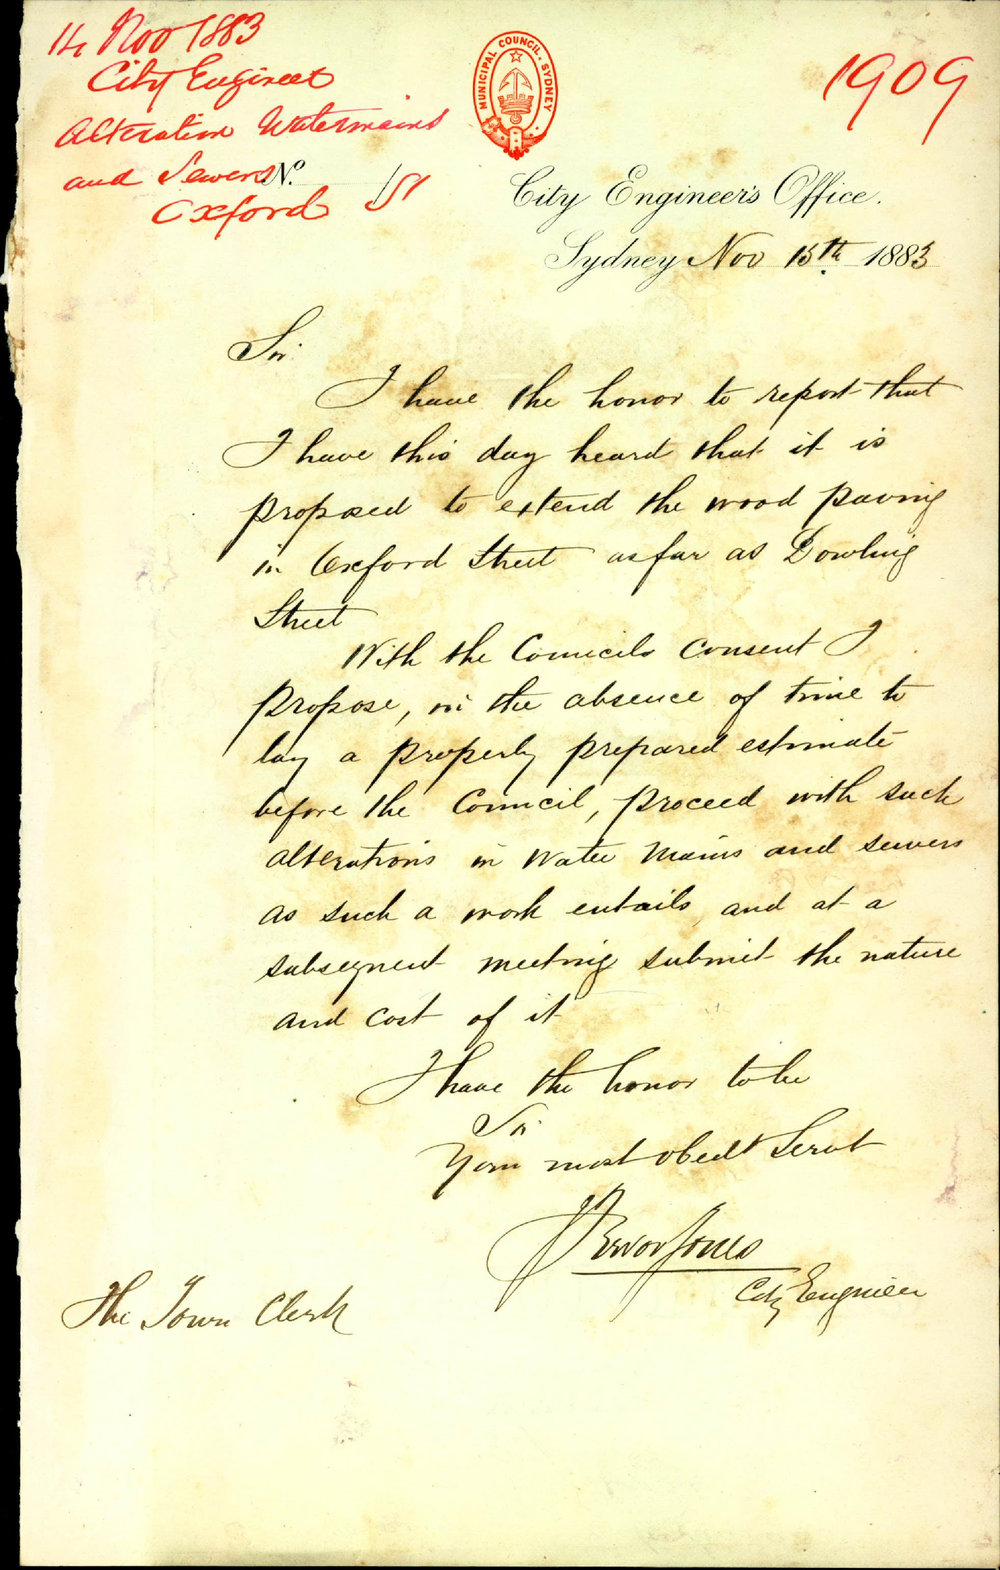 14 Nov 1883
City Engineer
Alteration Watermains
and Sewers
Oxford St
No.
MUNICIPAL COUNCIL, SYDNEY
1909
City Engineer's Office.
Sydney Nov 15th 1883
Sir
I have the honor to report that
I have this day heard that it is
proposed to extend the wood paving
in Oxford Street as far as Dowling
Street
With the Councils consent I
propose, in the absence of time to
lay a properly prepared estimate
before the Council, proceed with such
alterations in Water Mains and sewers
as such a work entails and at a
subsequent meeting submit the nature
and cost of it
I have the honor to be
Sir
Your most obedt Servt
J Trevor Jones
City Engineer
The Town Clerk